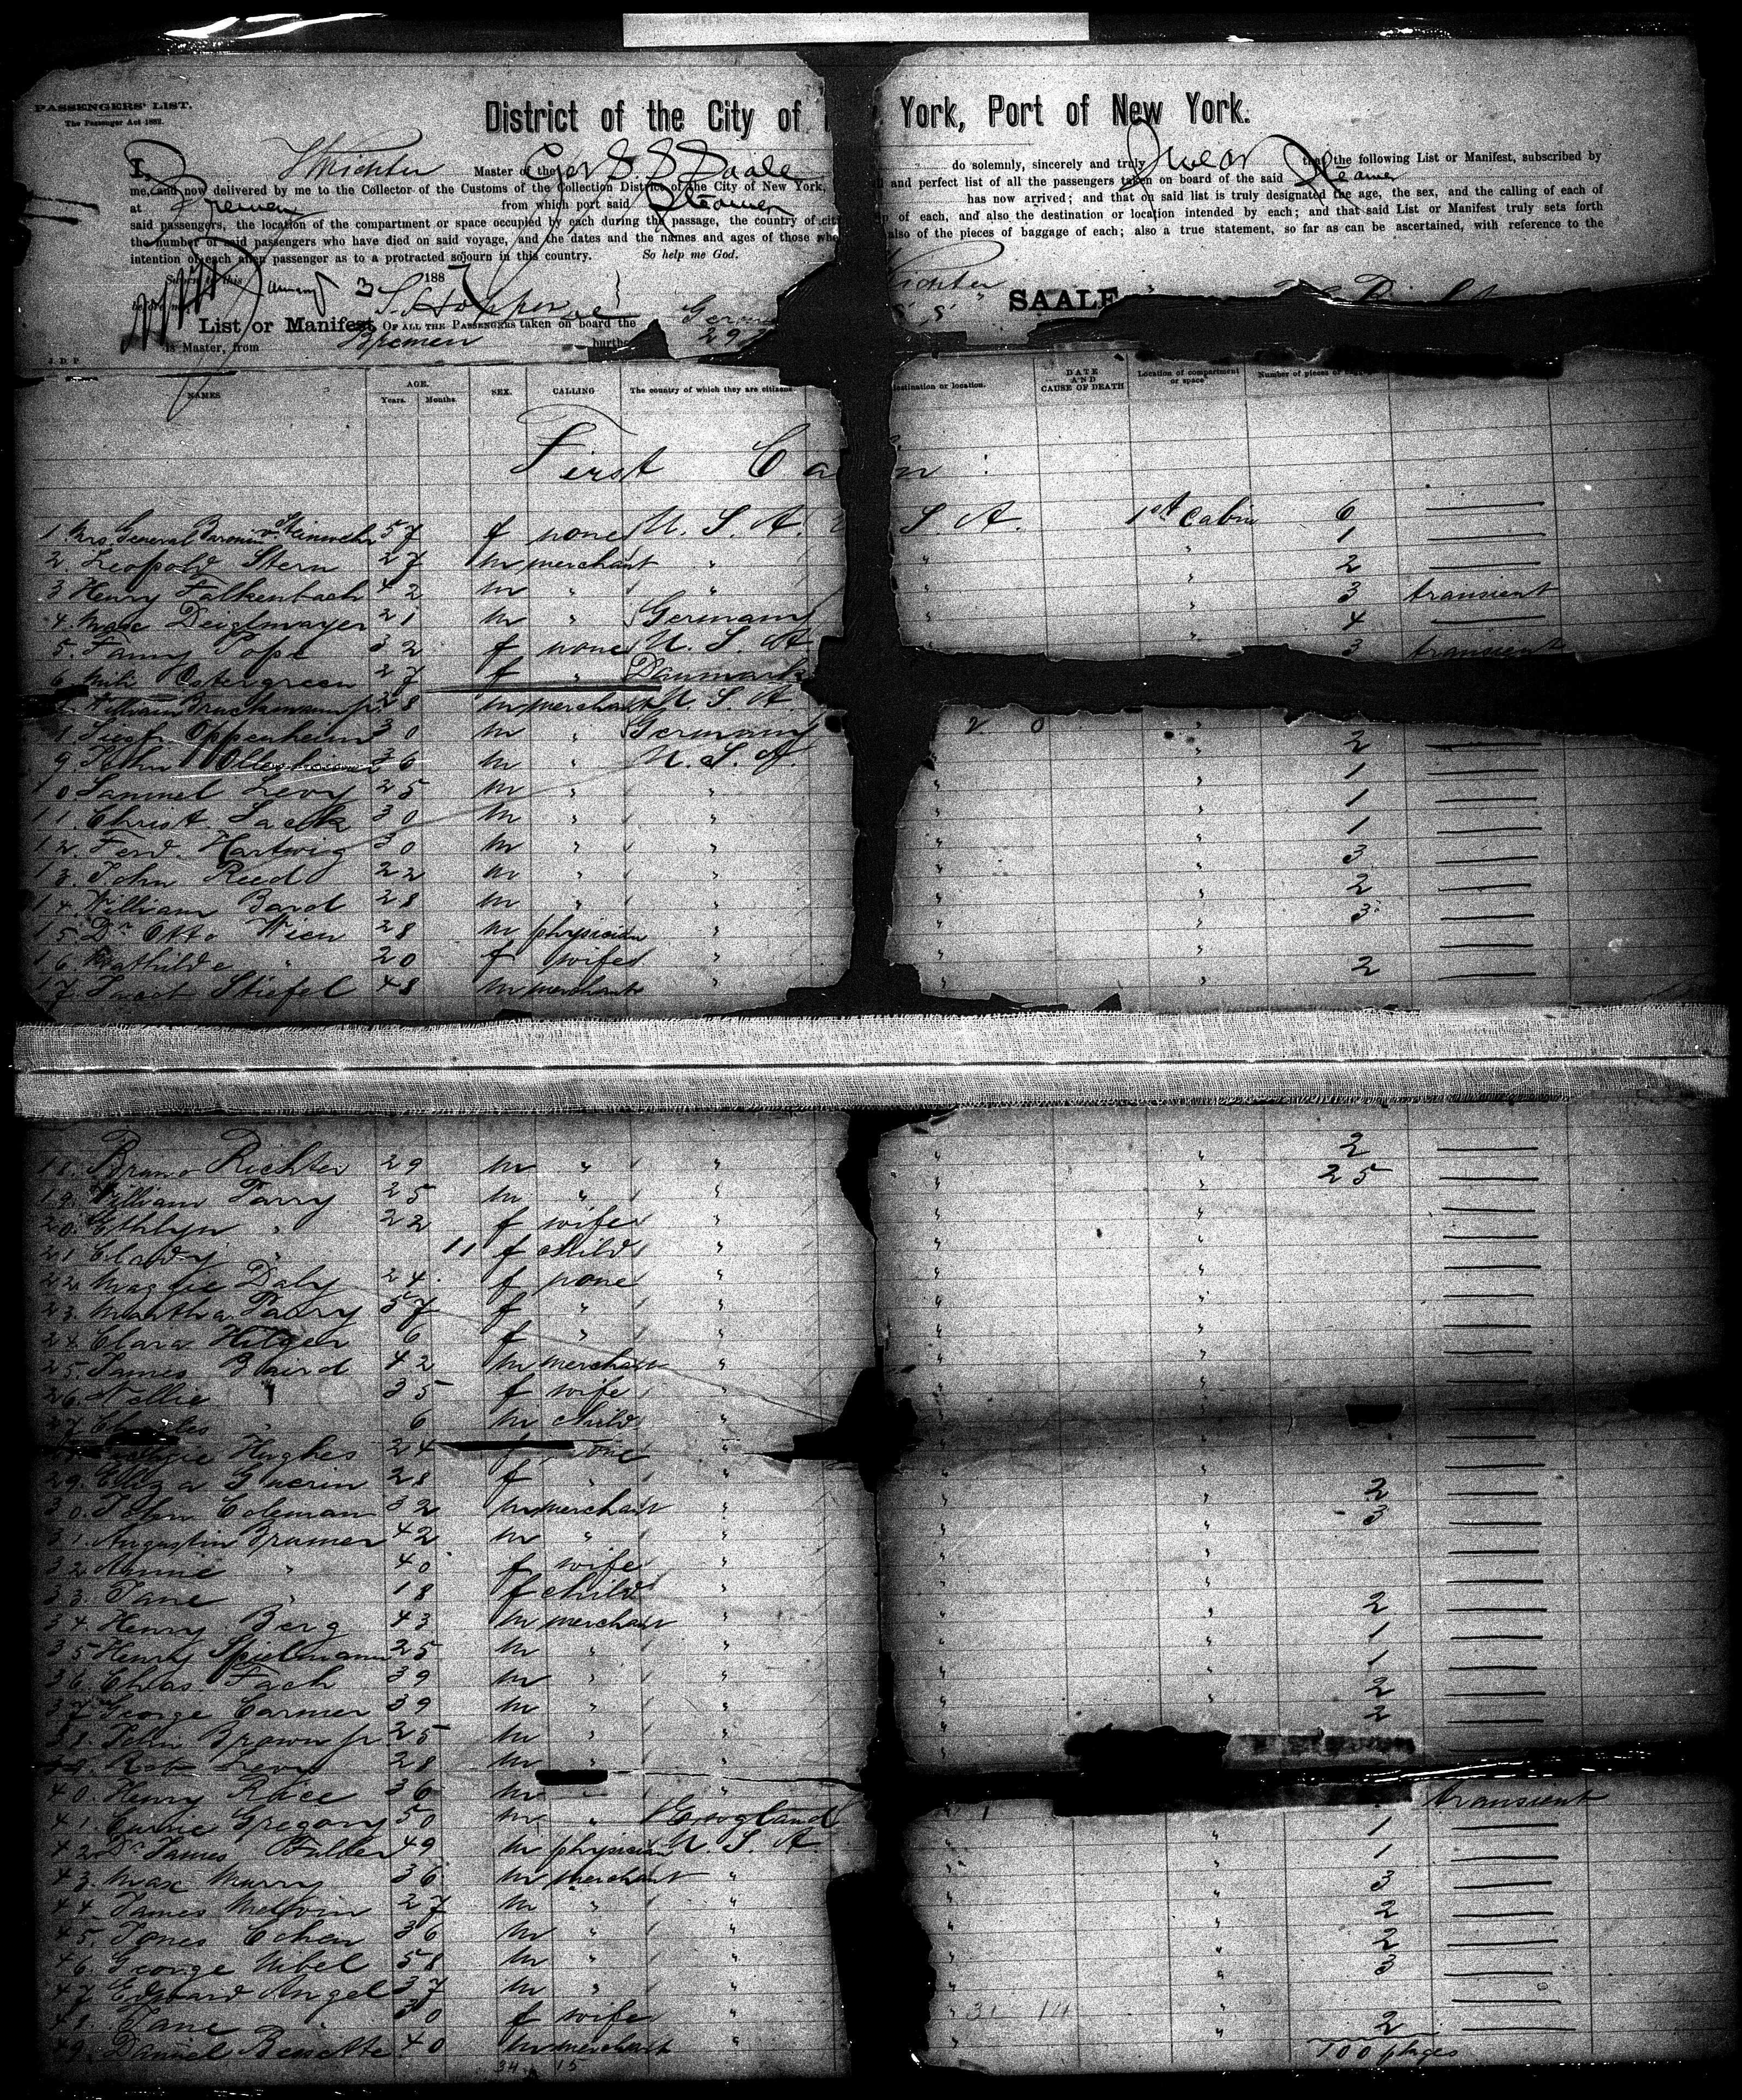 PASSENGERS' LIST.
The Passenger Act 1882.
District of the City of York, Port of New York.
I, H Richter Master of the Ger S. S. Saale do solemnly, sincerely and truly swear that the following List or Manifest, subscribed by
me, and now delivered by me to the Collector of the Customs of the Collection District of the City of New York, and perfect list of all the passengers taken on board of the said Steamer
at Bremen from which port said Steamer has now arrived; and that on said list is truly designated the age, the sex, and the calling of each of
said passengers, the location of the compartment or space occupied by each during the passage, the country of of each, and also the destination or location intended by each; and that said List or Manifest truly sets forth
the number of said passengers who have died on said voyage, and the dates and the names and ages of those also of the pieces of baggage of each; also a true statement, so far as can be ascertained, with reference to the
intention of each alien passenger as to a protracted sojourn in this country. So help me God.
Sworn to this January 3 1887 Richter
before me
List or Manifest, OF ALL THE PASSENGERS taken on board the S. S. SAALE
is Master, from Bremen burthe
J. D. P.
NAMES AGE. Years. Months. SEX. CALLING The country of which they are citizens destination or location. DATE AND CAUSE OF DEATH Location of compartment or space Number of pieces of
First Ca n :
1 Mrs. General Baronin v. Steinwehr 57 f none U. S. A. S. A. 1st Cabin 6 —
2. Leopold Stern 27 m merchant " " " 1 —
3 Henry Falkenbach 42 m " " " " 2 —
4. Max Deiglmayer 21 m " Germany " " 3 transient
5. Fanny Pope 32 f none U. S. A. " " 4 —
6 Ostergreen 27 f " Danmark 3 transient
William Bruckmann jr. 28 m merchant U. S. A.
Oppenheim 30 m " Germany 2 0 "
9. John 36 m " U. S. A. " 2 —
10. Samuel Levy 25 m " " " " 1 —
11. Christ. Sack 30 m " " " " 1 —
12. Ferd. Hartwig 30 m " " " " 1 —
13. John Reed 22 m " " " " 3 —
14. William Bard 28 m " " " " 2 —
15. Dr Otto Wien 28 m physician " " " 3 —
16. Mathilde " 20 f wife " " " —
17. Stiefel 48 m merchant " " " 2 —
18. Bruno Richter 29 m " " " " 2 —
19. William Parry 25 m " " " " 25 —
20. Ethlyn " 22 f wife " " " —
21 " 11 f child " " " —
22. Maggie Daly 24 f none " " " —
23. Martha Parry 57 f " " " " —
24. Clara Hilger 6 f " " " " —
25. James Baird 42 m merchant " " " —
26. Nellie " 35 f wife " " " —
27. Charles " 6 m child " " —
Hughes 24 f none " " " —
29. Eliza Guerin 28 f " " " " —
30. John Coleman 32 m merchant " " " 2 —
31. Augustin Bramer 42 m " " " " 3 —
32. Annie " 40 f wife " " " —
33. Jane " 18 f child " " " —
34. Henry Berg 43 m merchant " " " 2 —
35 Henry Spielmann 25 m " " " " 1 —
36. Chas. Fach 39 m " " " " 1 —
37. George Carmer 39 m " " " " 2 —
38. John Brown jr. 25 m " " " 2 —
39. Rob Levy 28 m " " " —
40. Henry Race 36 m " "
41. Gregory 50 m " England 1 transient
42. Dr James Fuller 49 m physician U. S. A. " " 1 —
43. Max Murry 36 m merchant " " " 1 —
44. James Melvin 27 m " " " " 3 —
45. Jones Cohen 36 m " " " " 2 —
46. George Nibel 58 m " " " " 2 —
47. Edward Angel 37 m " " " " 3 —
48. Jane " 30 f wife " " " —
49. Daniel 40 m merchant " " " 2 —
34 15 100 pkages